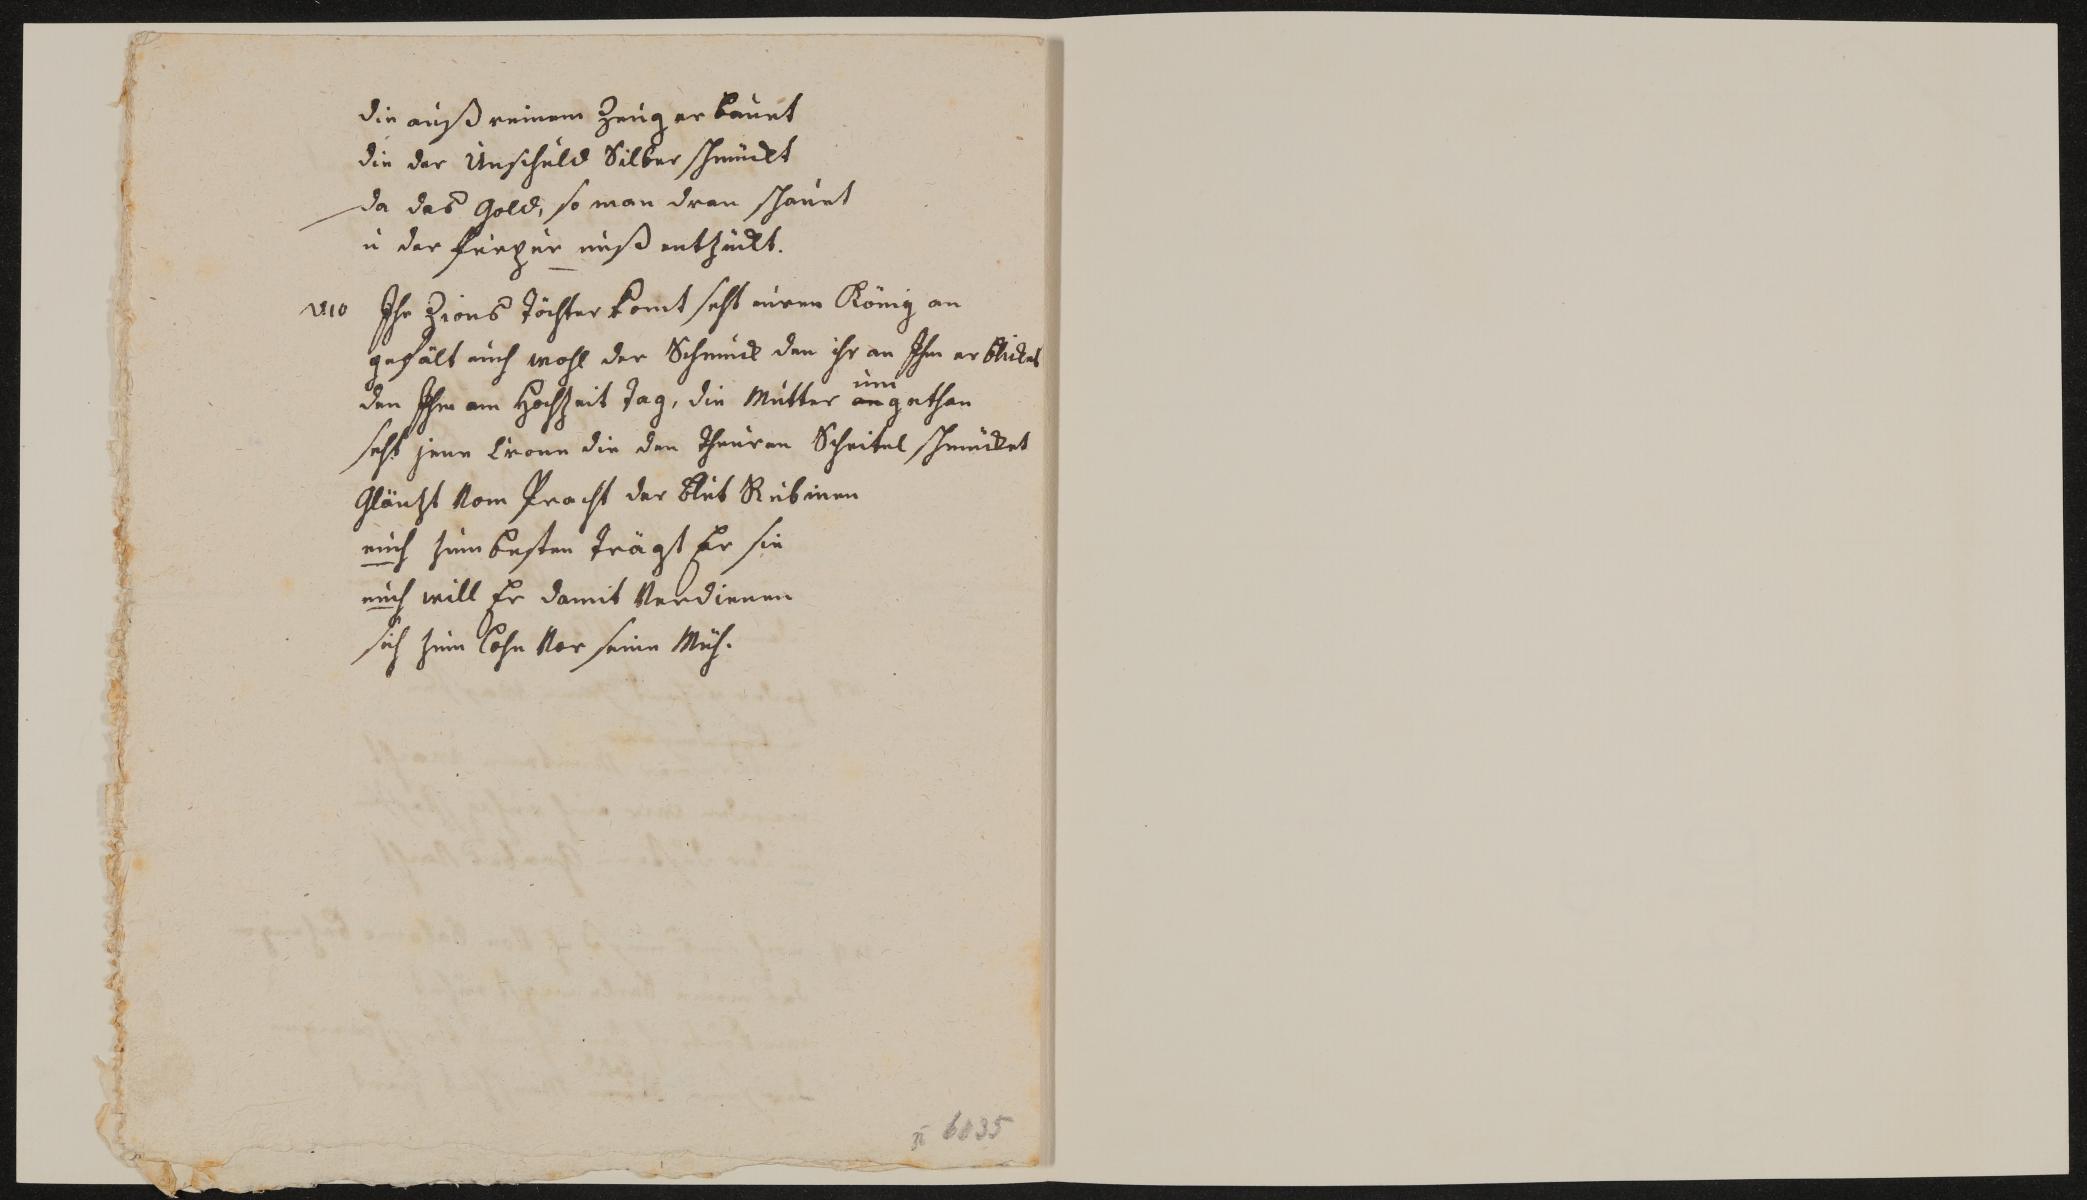 die auß reinem Zeug erbauet
die der Unschuld Silber schmückt
da das Gold, so man dran schauet
u der Purpur uuß entzückt.
V10 Ihr Zions Töchter komt seht euren König an
gefält euch wohl der Schmuck den ihr an Ihm erblicket
den Ihm am Hochzeit Tag, die Mutter an um gethan
seht jene Crone die den theuren Scheitel schmücket
Gläntzt vom Pracht der Blut Rubinen
euch zum besten trägt Er sie
euch will Er damit verdienen
sich zum Lohn vor seine Müh.
6035